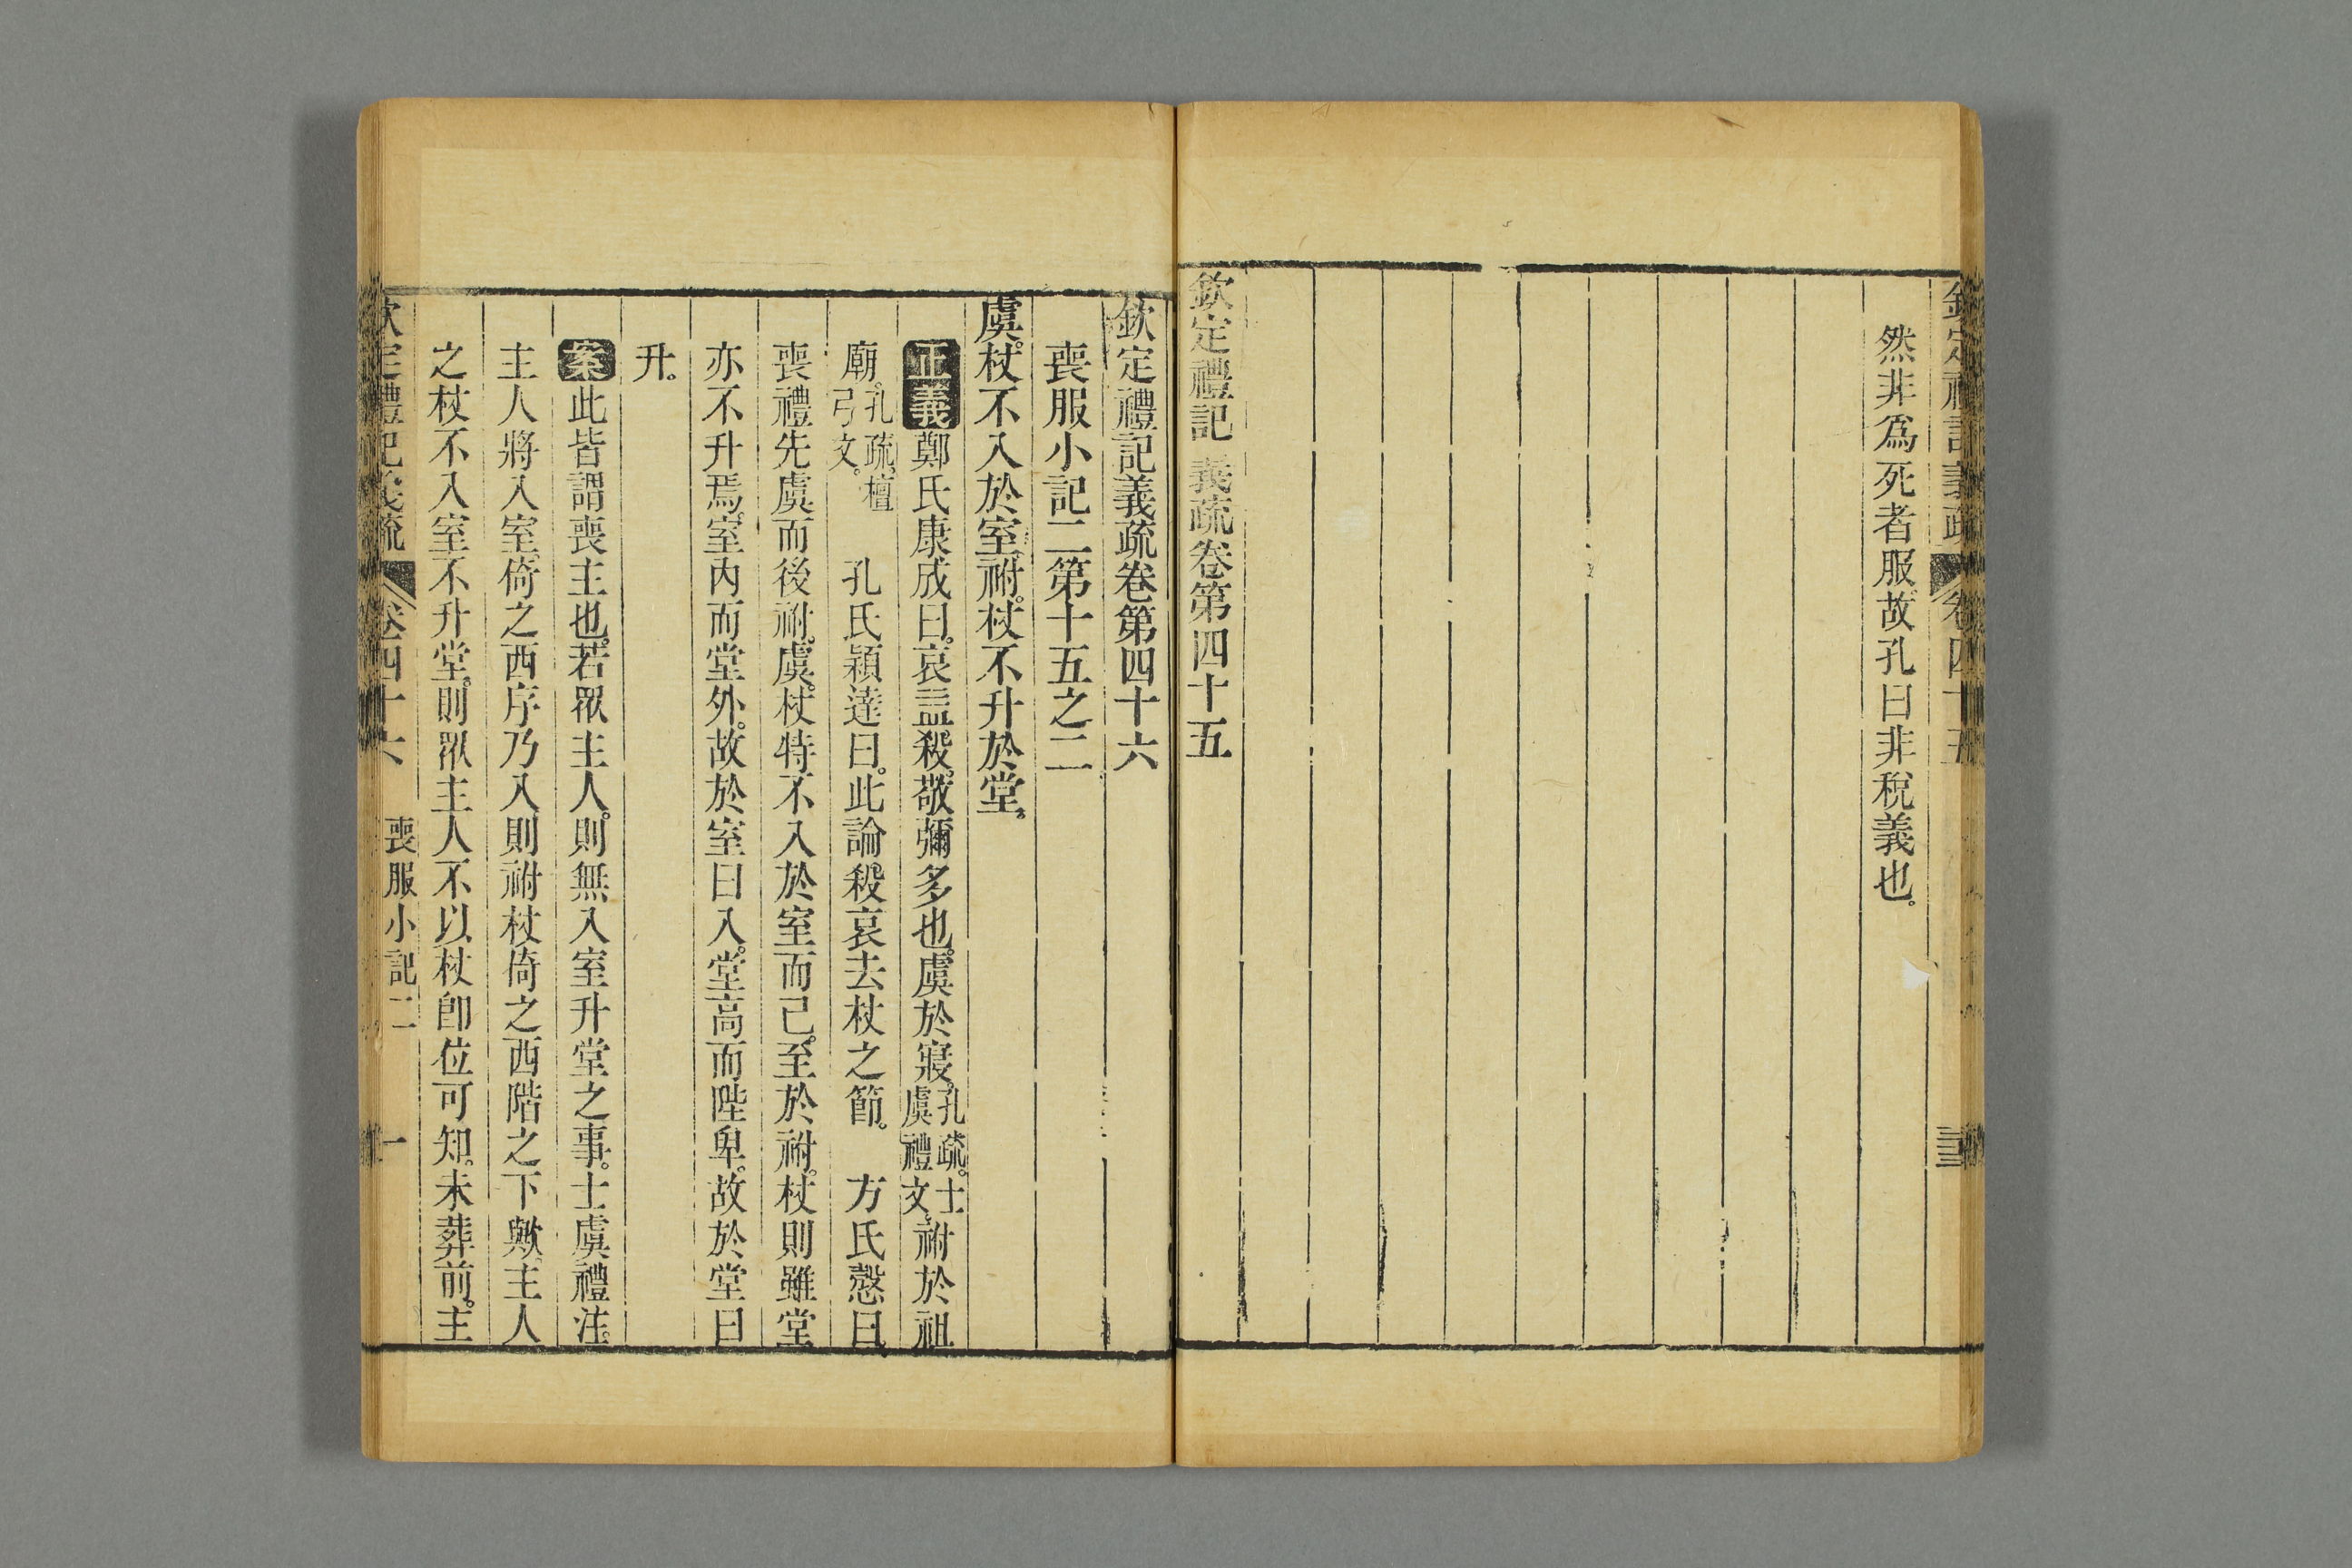 欽定禮記義疏 卷四十五 三三
然非為死者服故孔曰非稅義也。
欽定禮記義疏卷第四十五
欽定禮記義疏卷第四十六
喪服小記二第十五之二
虞。杖不入於室。祔。杖不升於堂。
正義鄭氏康成曰。哀益殺。敬彌多也。虞於寢。孔疏。士虞禮文。祔於祖
廟。孔疏。檀弓文。 孔氏穎達曰。此論殺哀去杖之節。 方氏慤曰。
喪禮先虞而後祔。虞。杖特不入於室而已。至於祔。杖則雖堂
亦不升焉。室內而堂外。故於室曰入。堂高而陛卑。故於堂曰
升。
案此皆謂喪主也。若眾主人。則無入室升堂之事。士虞禮注。
主人將入室。倚之西序乃入。則祔杖倚之西階之下歟。主人
之杖不入室不升堂。則眾主人不以杖卽位可知。未葬前。主
欽定禮記義疏 卷四十六 喪服小記二 一